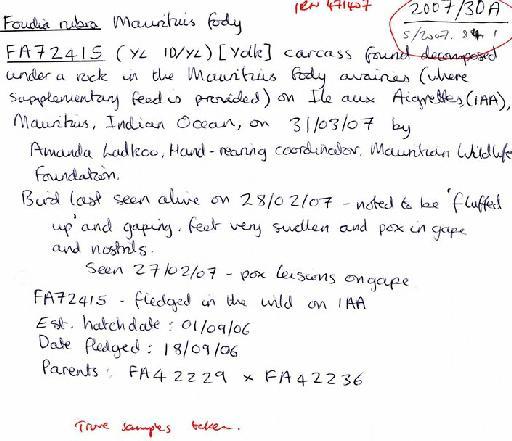 IRN 471407
2007/30A
S/2007. 84 1
Foudia rubra Mauritius fody
FA72415 (YL ID/YL) [Yolk] carcass found decomposed
under a rock in the Mauritius fody aviaries (where
supplementary feed is provided) on Ile aux Aigrettes (IAA),
Mauritius, Indian Ocean, on 31/03/07 by
Amanda Ladkoo, Hand-rearing coordinator, Mauritian Wildlife
Foundation.
Bird last seen alive on 28/02/07 - noted to be 'fluffed
up' and gaping. feet very swollen and pox in gape
and nostrils.
Seen 27/02/07 - pox lesions on gape
FA72415 - fledged in the wild on IAA
Est. hatch date : 01/09/06
Date fledged : 18/09/06
Parents : FA42229 x FA42236
samples taken.